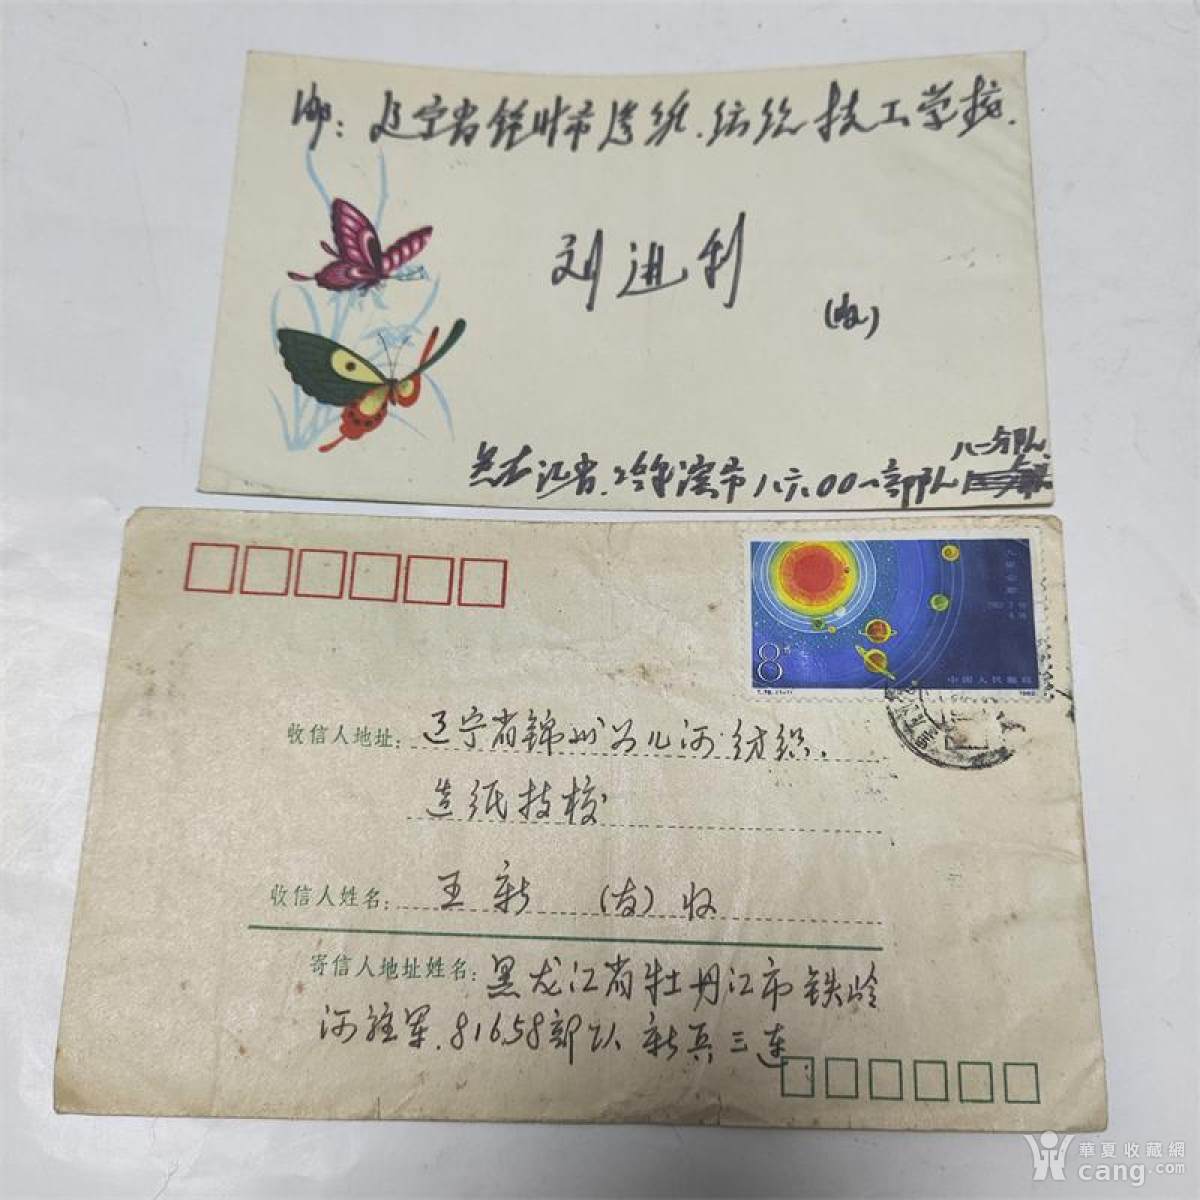 邮：辽宁省锦州市 纺织技工学校.
刘进利
(收)
八一分队
黑龙江省.哈尔滨市八六00一部队
8分
T.78.(1-1)
中国人民邮政
1982
收信人地址：辽宁省锦州 儿河纺织.
造纸技校
收信人姓名：王新 （友）收
寄信人地址姓名：黑龙江省牡丹江市铁岭
河驻军.81658部队 新兵三连
華夏收藏網
cang.com